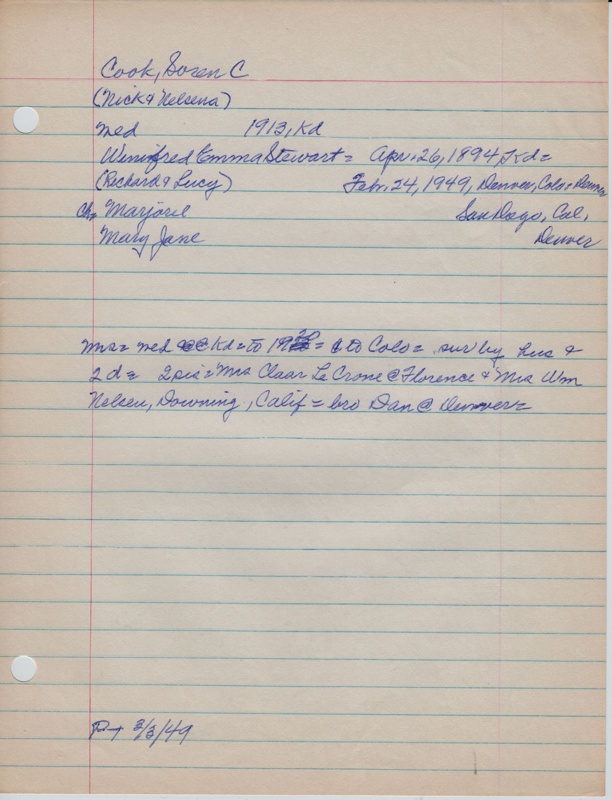 Cook, Soren C
(Nick & Nelsena)
Med 1913, Kd
Winifred Emma Stewart = Apr. 26, 1894, Kd =
(Richard & Lucy) Febr. 24, 1949, Denver, Colo = Denver
Ch = Marjorie San Dego, Cal,
Mary Jane Denver
Mrs = med @ Kd = to 1920 = to Colo = sur by hus &
2 d = 2 sis = Mrs Claar Le Crone @ Florence & Mrs Wm
Nelsen, Downing, Calif = bro Dan @ Denver =
P+ 3/3/49